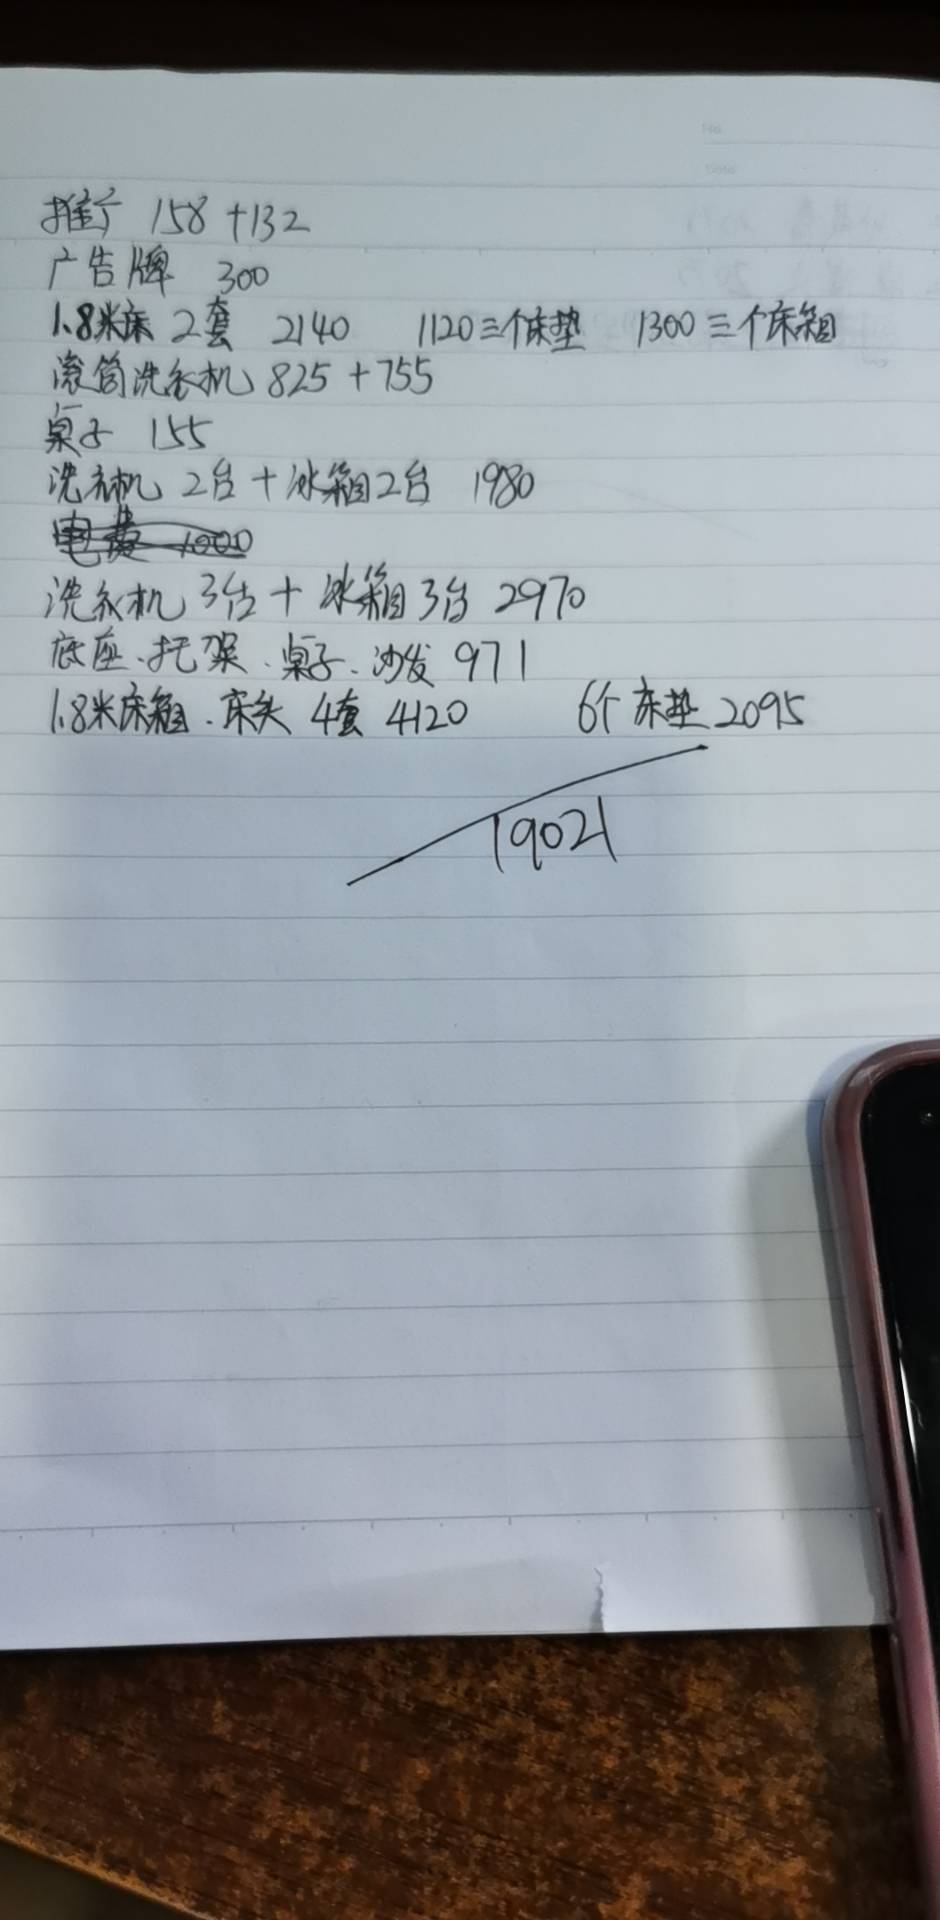 推广 158+132
广告牌 300
1.8米床 2套 2140 1120三个床垫 1300三个床箱
滚筒洗衣机 825+755
桌子 155
洗衣机 2台+冰箱2台 1980
电费 1000
洗衣机 3台+冰箱3台 2970
底座、托架、桌子、沙发 971
1.8米床箱、床头 4套 4120 6个床垫 2095
19021